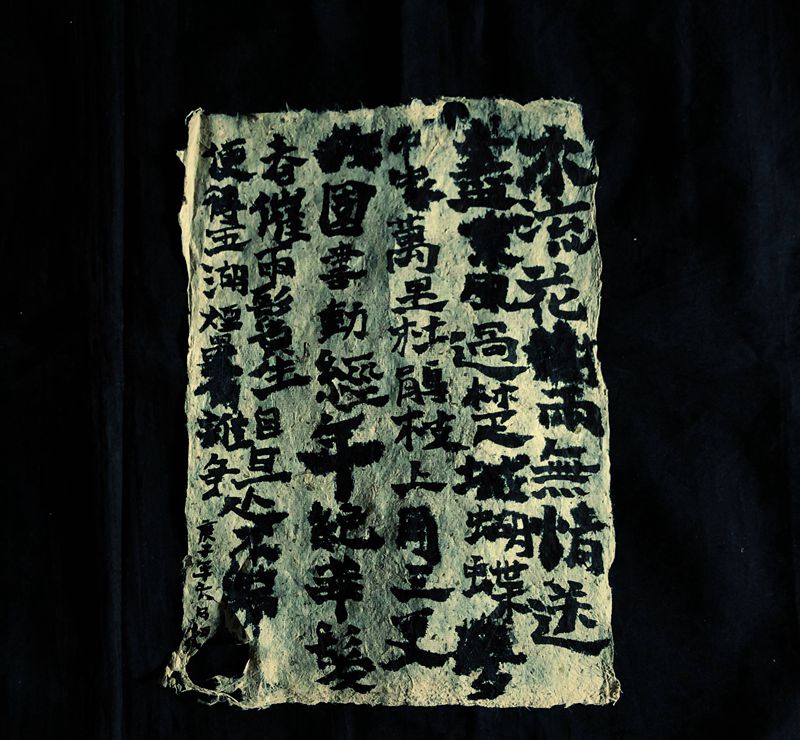 水流花謝兩無情送
盡東風過楚城蝴蝶夢
中家萬里杜鵑枝上月三更
故園書動經年絕華髮
春催兩鬢生自是不歸
便得五湖煙景有誰爭
年六月